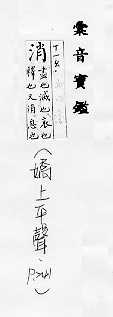 彙音寶鑑
ㄒㄧㄠ
消 盡也滅也衰也
釋也又消息也
(嬌上平聲.